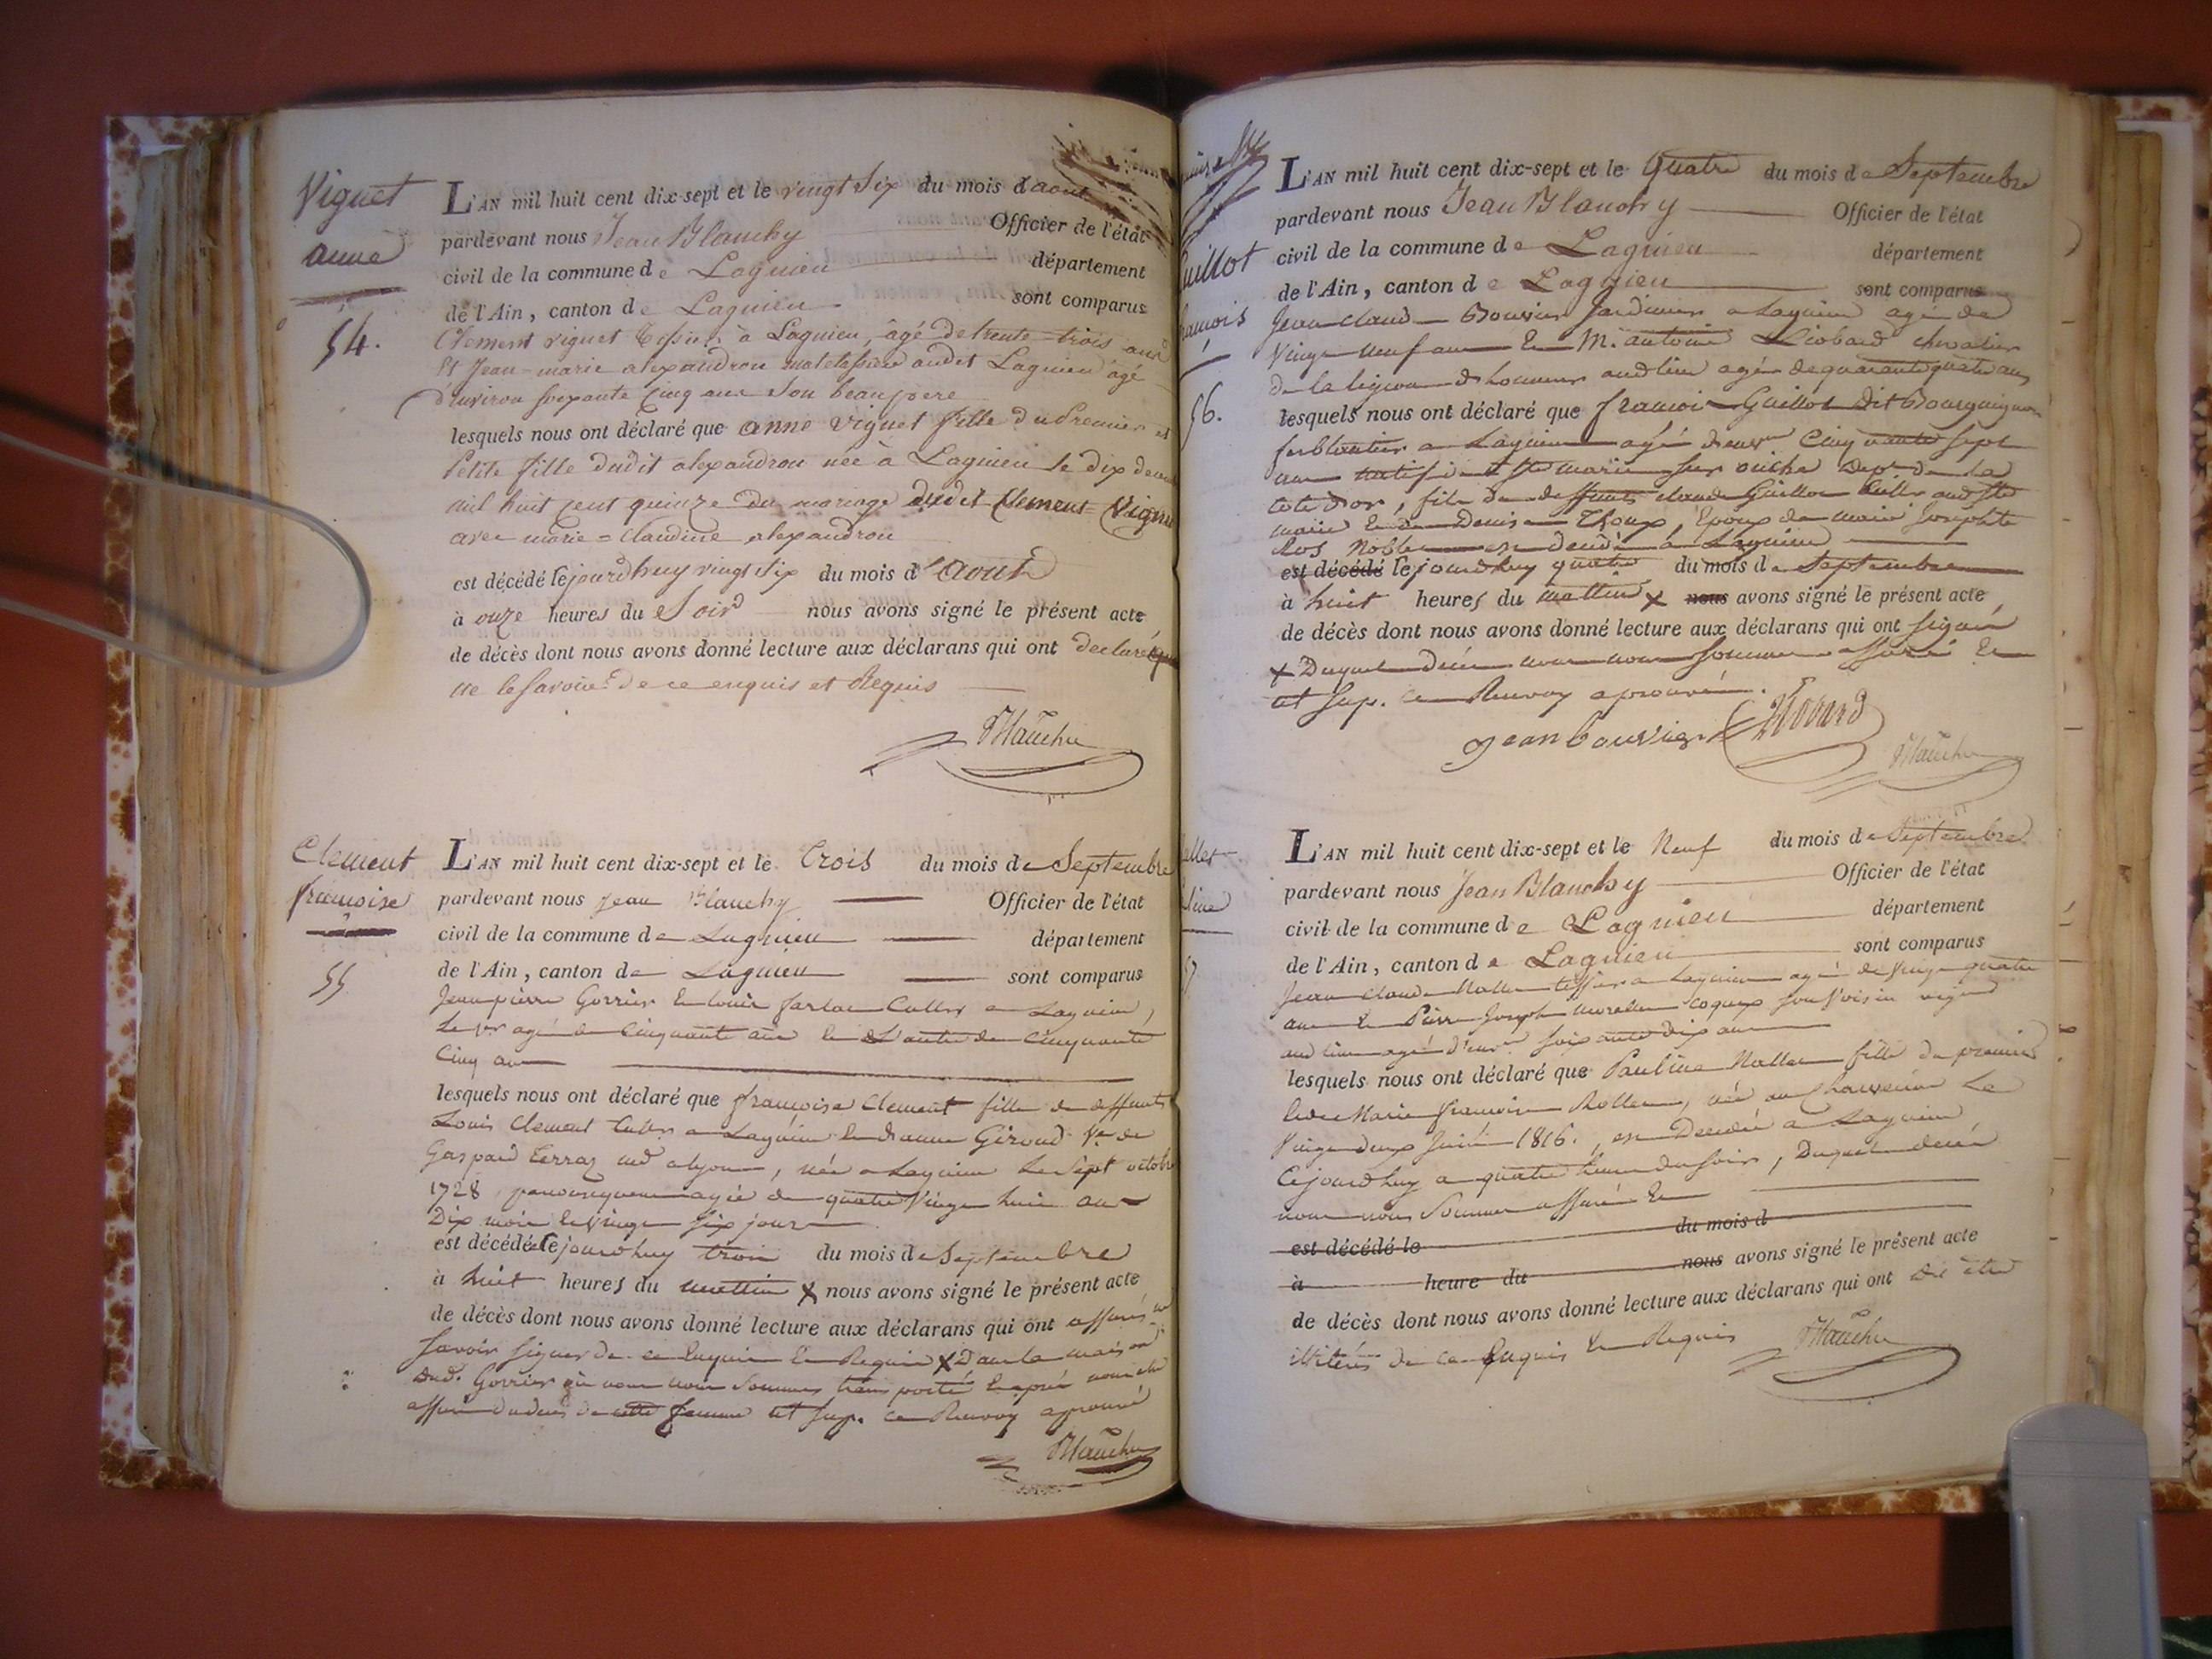 Viguet
anne
54.
L'AN mil huit cent dix-sept et le vingt Six du mois d'aout
pardevant nous Jean Blanchy Officier de l'état
civil de la commune de Lagnieu département
de l'Ain, canton de Lagnieu sont comparus
Clement viguet à Lagnieu, âgé de trente-trois ans
Et Jean-marie alexandron audit Lagnieu âgé
d'environ soixante cinq ans son beaupere
lesquels nous ont déclaré que anne viguet fille du Premier et
Petite fille dudit alexandron née à Lagnieu le dix
mil huit cent quinze du mariage dudit Clement Vigu
avec marie=Claudine alexandron
est décédé le jourdhuy vingt Six du mois d'aout
à onze heures du Soir nous avons signé le présent acte
de décès dont nous avons donné lecture aux déclarans qui ont declaré
ne le savoir de ce enquis et Requis
Blanchy
Clement
francoise
55
L'AN mil huit cent dix-sept et le trois du mois de Septembre
pardevant nous Jean Blanchy Officier de l'état
civil de la commune de Lagnieu département
de l'Ain, canton de Lagnieu sont comparus
Jean pierre Gorrier et louis Cultrs a Lagnieu,
le 1er agé de cinquante ans et L'autre de cinquante
cinq ans
lesquels nous ont déclaré que françoise Clement fille de deffunts
Louis Clement Cultr a Lagnieu et danne Giroud Ve de
Gaspard Terraz a lyon, née a Lagnieu le Sept octobre
1728, agée de quatre Vingt huit ans
Dix mois et vingt six jours
est décédée le jourdhuy trois du mois de Septembre
à huit heures du mattin x nous avons signé le présent acte
de décès dont nous avons donné lecture aux déclarans qui ont assuré ne
savoir signer de ce Enquis et Requis x Dans la maison
dud. Gorrier où nous nous sommes transporté et après nous être
assuré du deces de cette femme ce Renvoy aprouvé
Blanchy
uillot
rancois
56.
L'AN mil huit cent dix-sept et le Quatre du mois de Septembre
pardevant nous Jean Blanchy Officier de l'état
civil de la commune de Lagnieu département
de l'Ain, canton de Lagnieu sont comparus
Jean Claude Bouvier Jardinier a Lagnieu agé de
Vingt neuf ans Et M. antoine Liobard chevalier
de la légion d'honneur audt lieu agé de quarante quatre ans
lesquels nous ont déclaré que françois Guillot Dit Bourguignon
ferblantier a Lagnieu agé d'envn Cinquante Sept
ans natif de Ste marie sur ouche Dept de la
Cote d'or, fils de deffunts claude Guillot Cultr aud Ste
marie Et de Denise, Epoux de marie Josephte
Ros Noble est decedé à Lagnieu
est décédé le jourdhuy quatre du mois de Septembre
à huit heures du mattin x nous avons signé le présent acte
de décès dont nous avons donné lecture aux déclarans qui ont signé
x Duquel décès nous nous sommes assuré Et
ce Renvoy aprouvé.
Jean bouvier Liobard
Blanchy
allet
line
57
L'AN mil huit cent dix-sept et le Neuf du mois de Septembre
pardevant nous Jean Blanchy Officier de l'état
civil de la commune de Lagnieu département
de l'Ain, canton de Lagnieu sont comparus
Jean Claude Mallet a Lagnieu agé de Vingt quatre
ans Et Pierre Joseph son Voisin
aud lieu agé d'envn soixante dix ans
lesquels nous ont déclaré que Pauline Mallet fille du premier
Et de Marie françoise, née au le
Vingt deux Juin 1816., est Decedée a Lagnieu
Cejourdhuy a quatre heures du soir, Duquel décès
nous nous Sommes assuré Et
est décédé le du mois d
à heure du nous avons signé le présent acte
de décès dont nous avons donné lecture aux déclarans qui ont dit être
illitérés de ce Enquis Et Requis
Blanchy